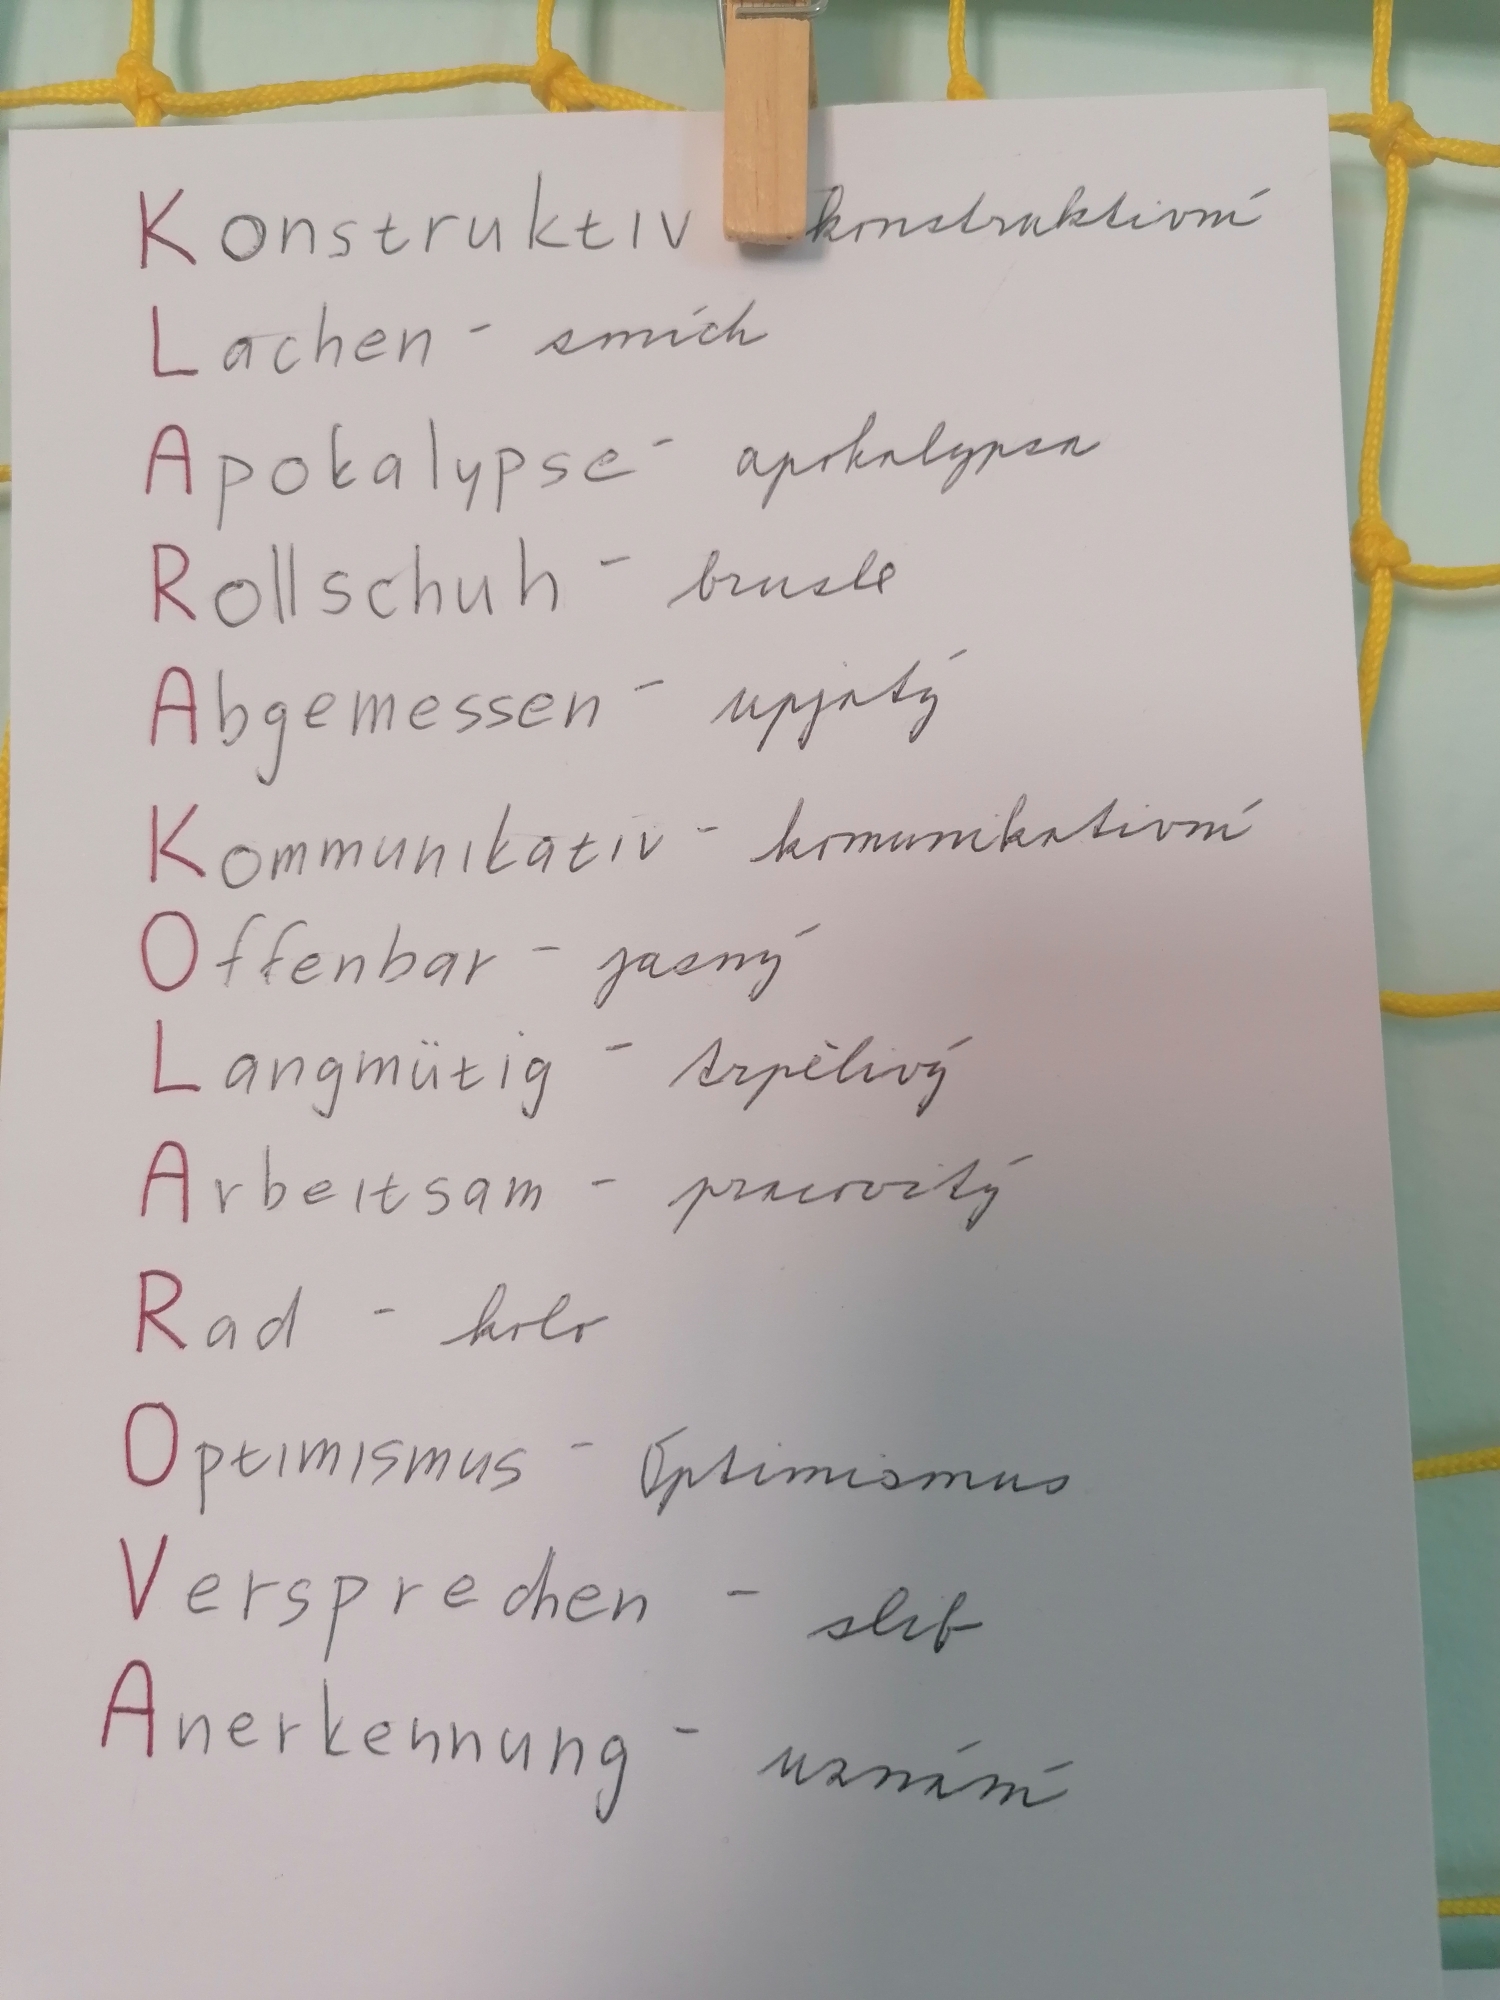 Konstruktiv konstruktivní
Lachen - smích
Apokalypse - apokalypsa
Rollschuh - brusle
Abgemessen - upjatý
Kommunikativ - komunikativní
Offenbar - jasný
Langmütig - trpělivý
Arbeitsam - pracovitý
Rad - kolo
Optimismus - Optimismus
Versprechen - slib
Anerkennung - uznání